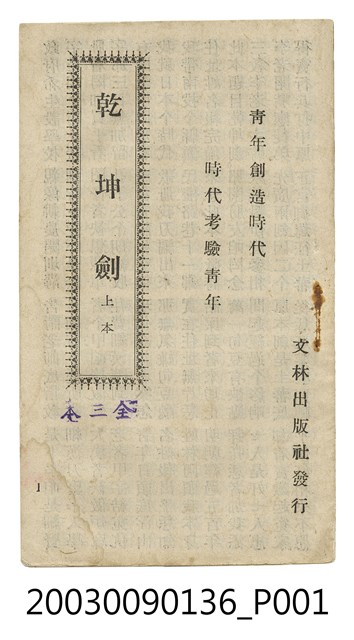 青年創造時代
時代考驗青年
乾坤劍上本
全三本
文林出版社發行
1
20030090136_P001